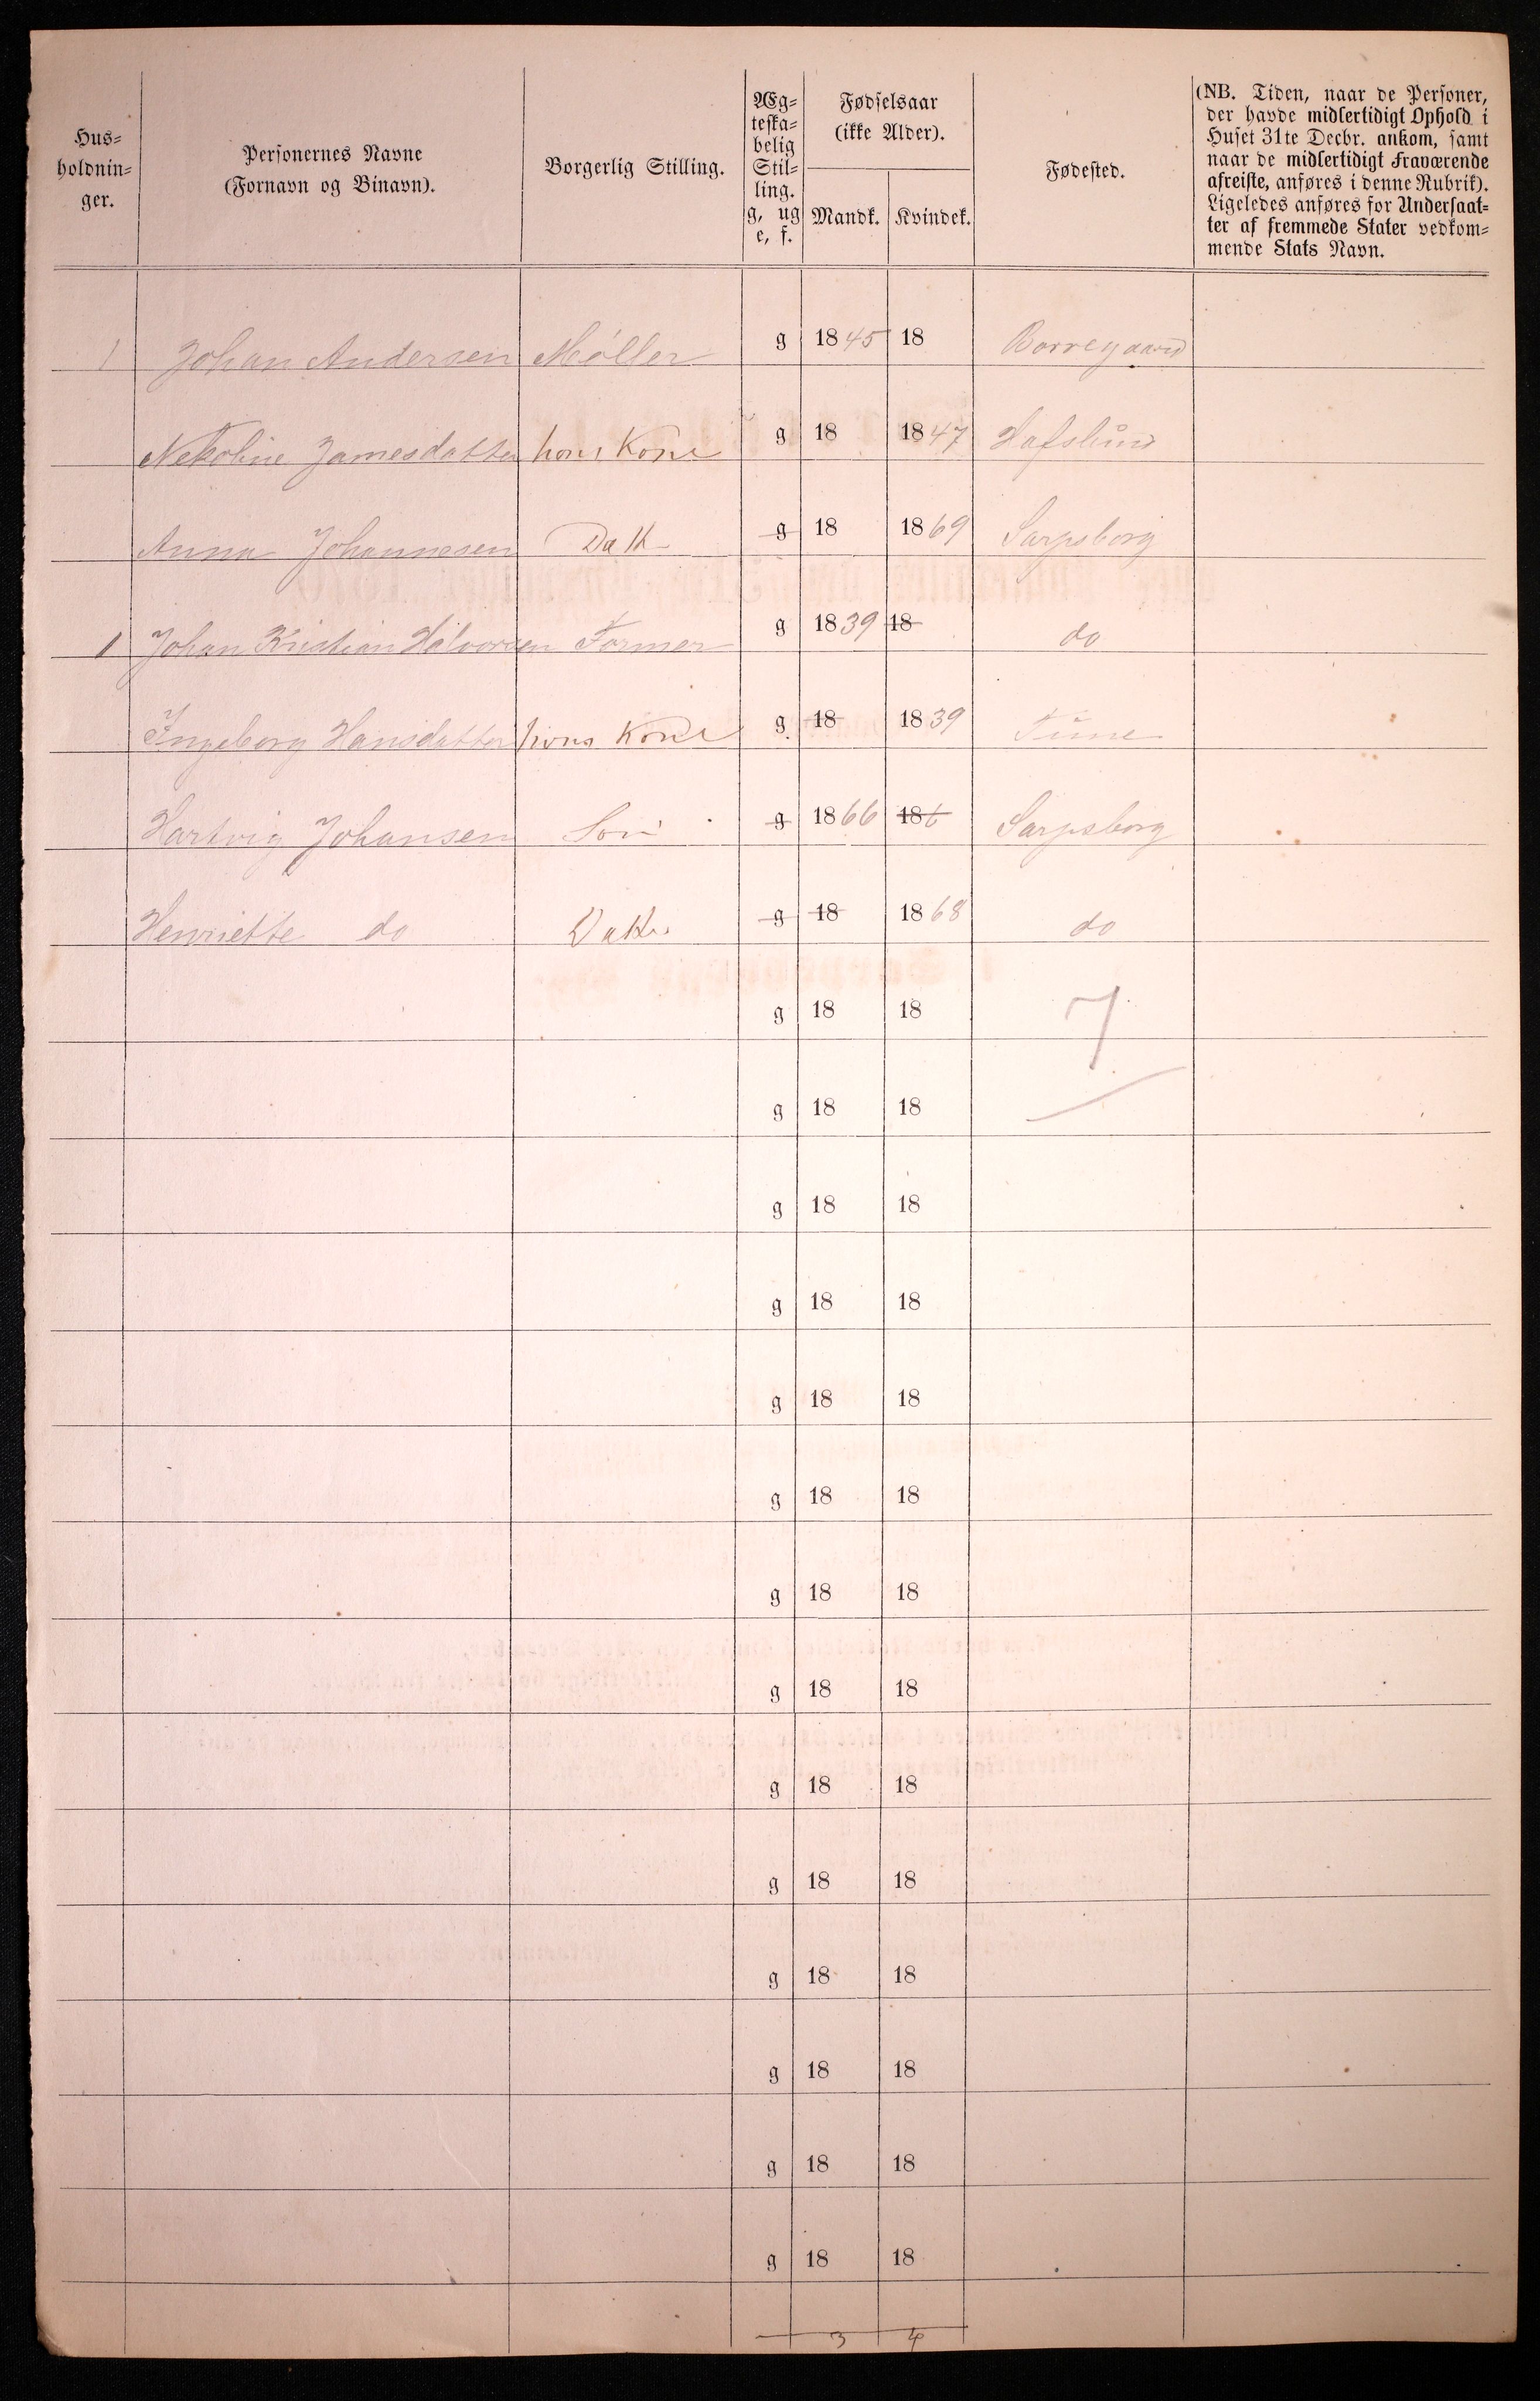 Hus-
holdnin-
ger.
Personernes Navne
(Fornavn og Binavn).
Borgerlig Stilling.
Æg-
teska-
belig
Stil-
ling.
g, ug
e, f.
Fødselsaar
(ikke Alder).
Mandk. Kvindek.
Fødested.
(NB. Tiden, naar de Personer,
der havde midlertidigt Ophold i
Huset 31te Decbr. ankom, samt
naar de midlertidigt Fraværende
afreiste, anføres i denne Rubrik).
Ligeledes anføres for Undersaat-
ter af fremmede Stater vedkom-
mende Stats Navn.
1 Johan Andersen Möller g 1845 18 Borregaard
Nekoline Jamesdatter hans Kone g 18 1847 Hafslund
Anna Johannesen Datt g 18 1869 Sarpsborg
1 Johan Kristian Halvorsen Former g 1839 18 do
Ingeborg Hansdatter hans Kone g. 18 1839 Tune
Hartvig Johansen Son g 1866 186 Sarpsborg
Henriette do Datter g 18 1868 do
g 18 18 7
g 18 18
g 18 18
g 18 18
g 18 18
g 18 18
g 18 18
g 18 18
g 18 18
g 18 18
g 18 18
g 18 18
g 18 18
g 18 18
3 4